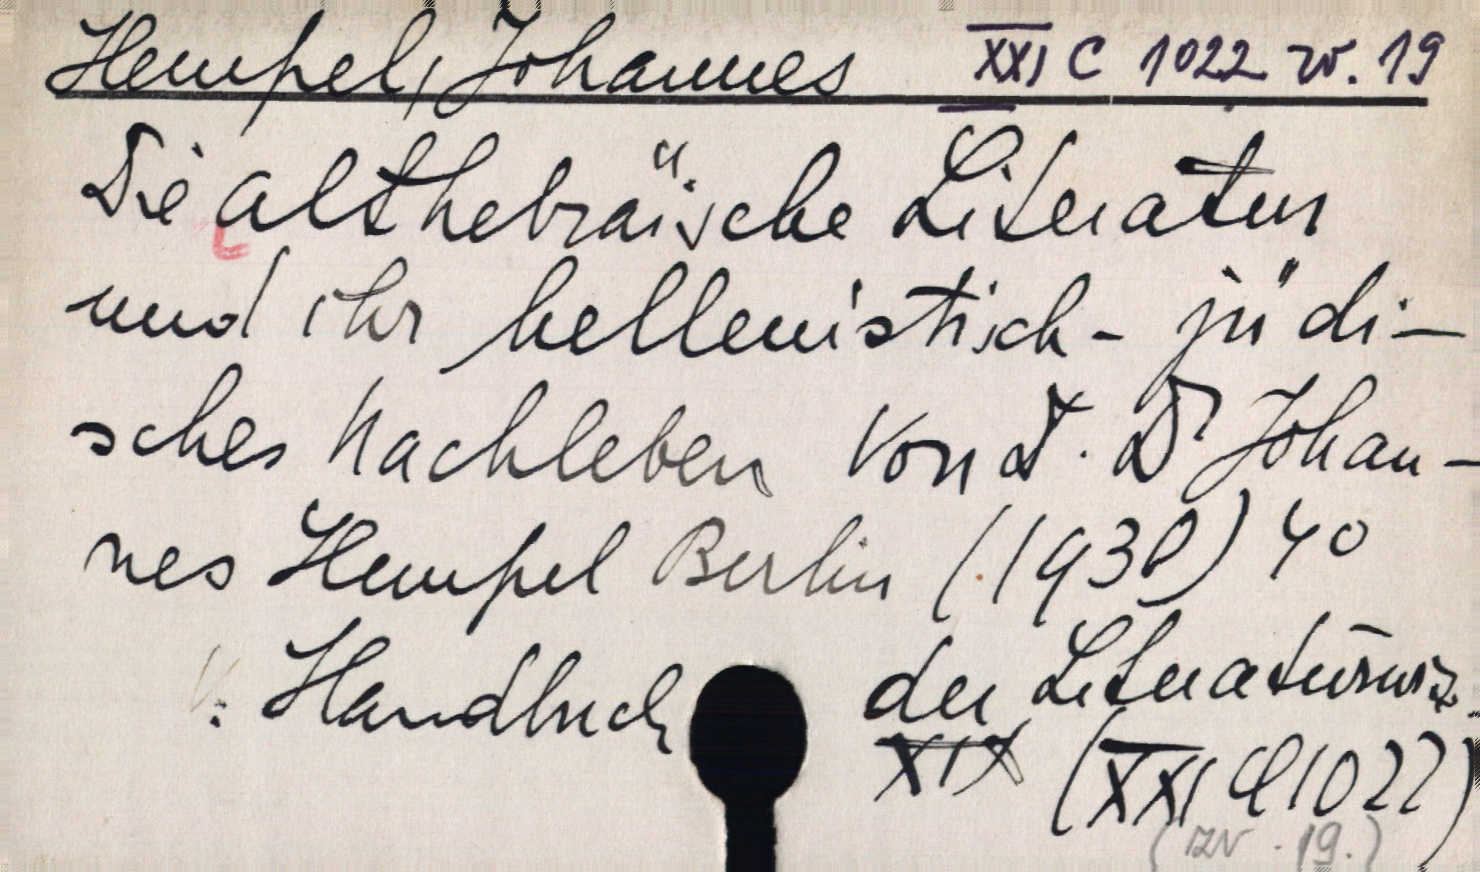 Hempel, Johannes XXI C 1022 zv. 19
Die althebräische Literatur
und ihr hellenistisch-jüdi-
sches Nachleben Von D. Dr Johan-
nes Hempel Berlin (1930) 4o
V: Handbuch der Literaturwiz.
XIX (XXI C 1022)
(zv. 19.)